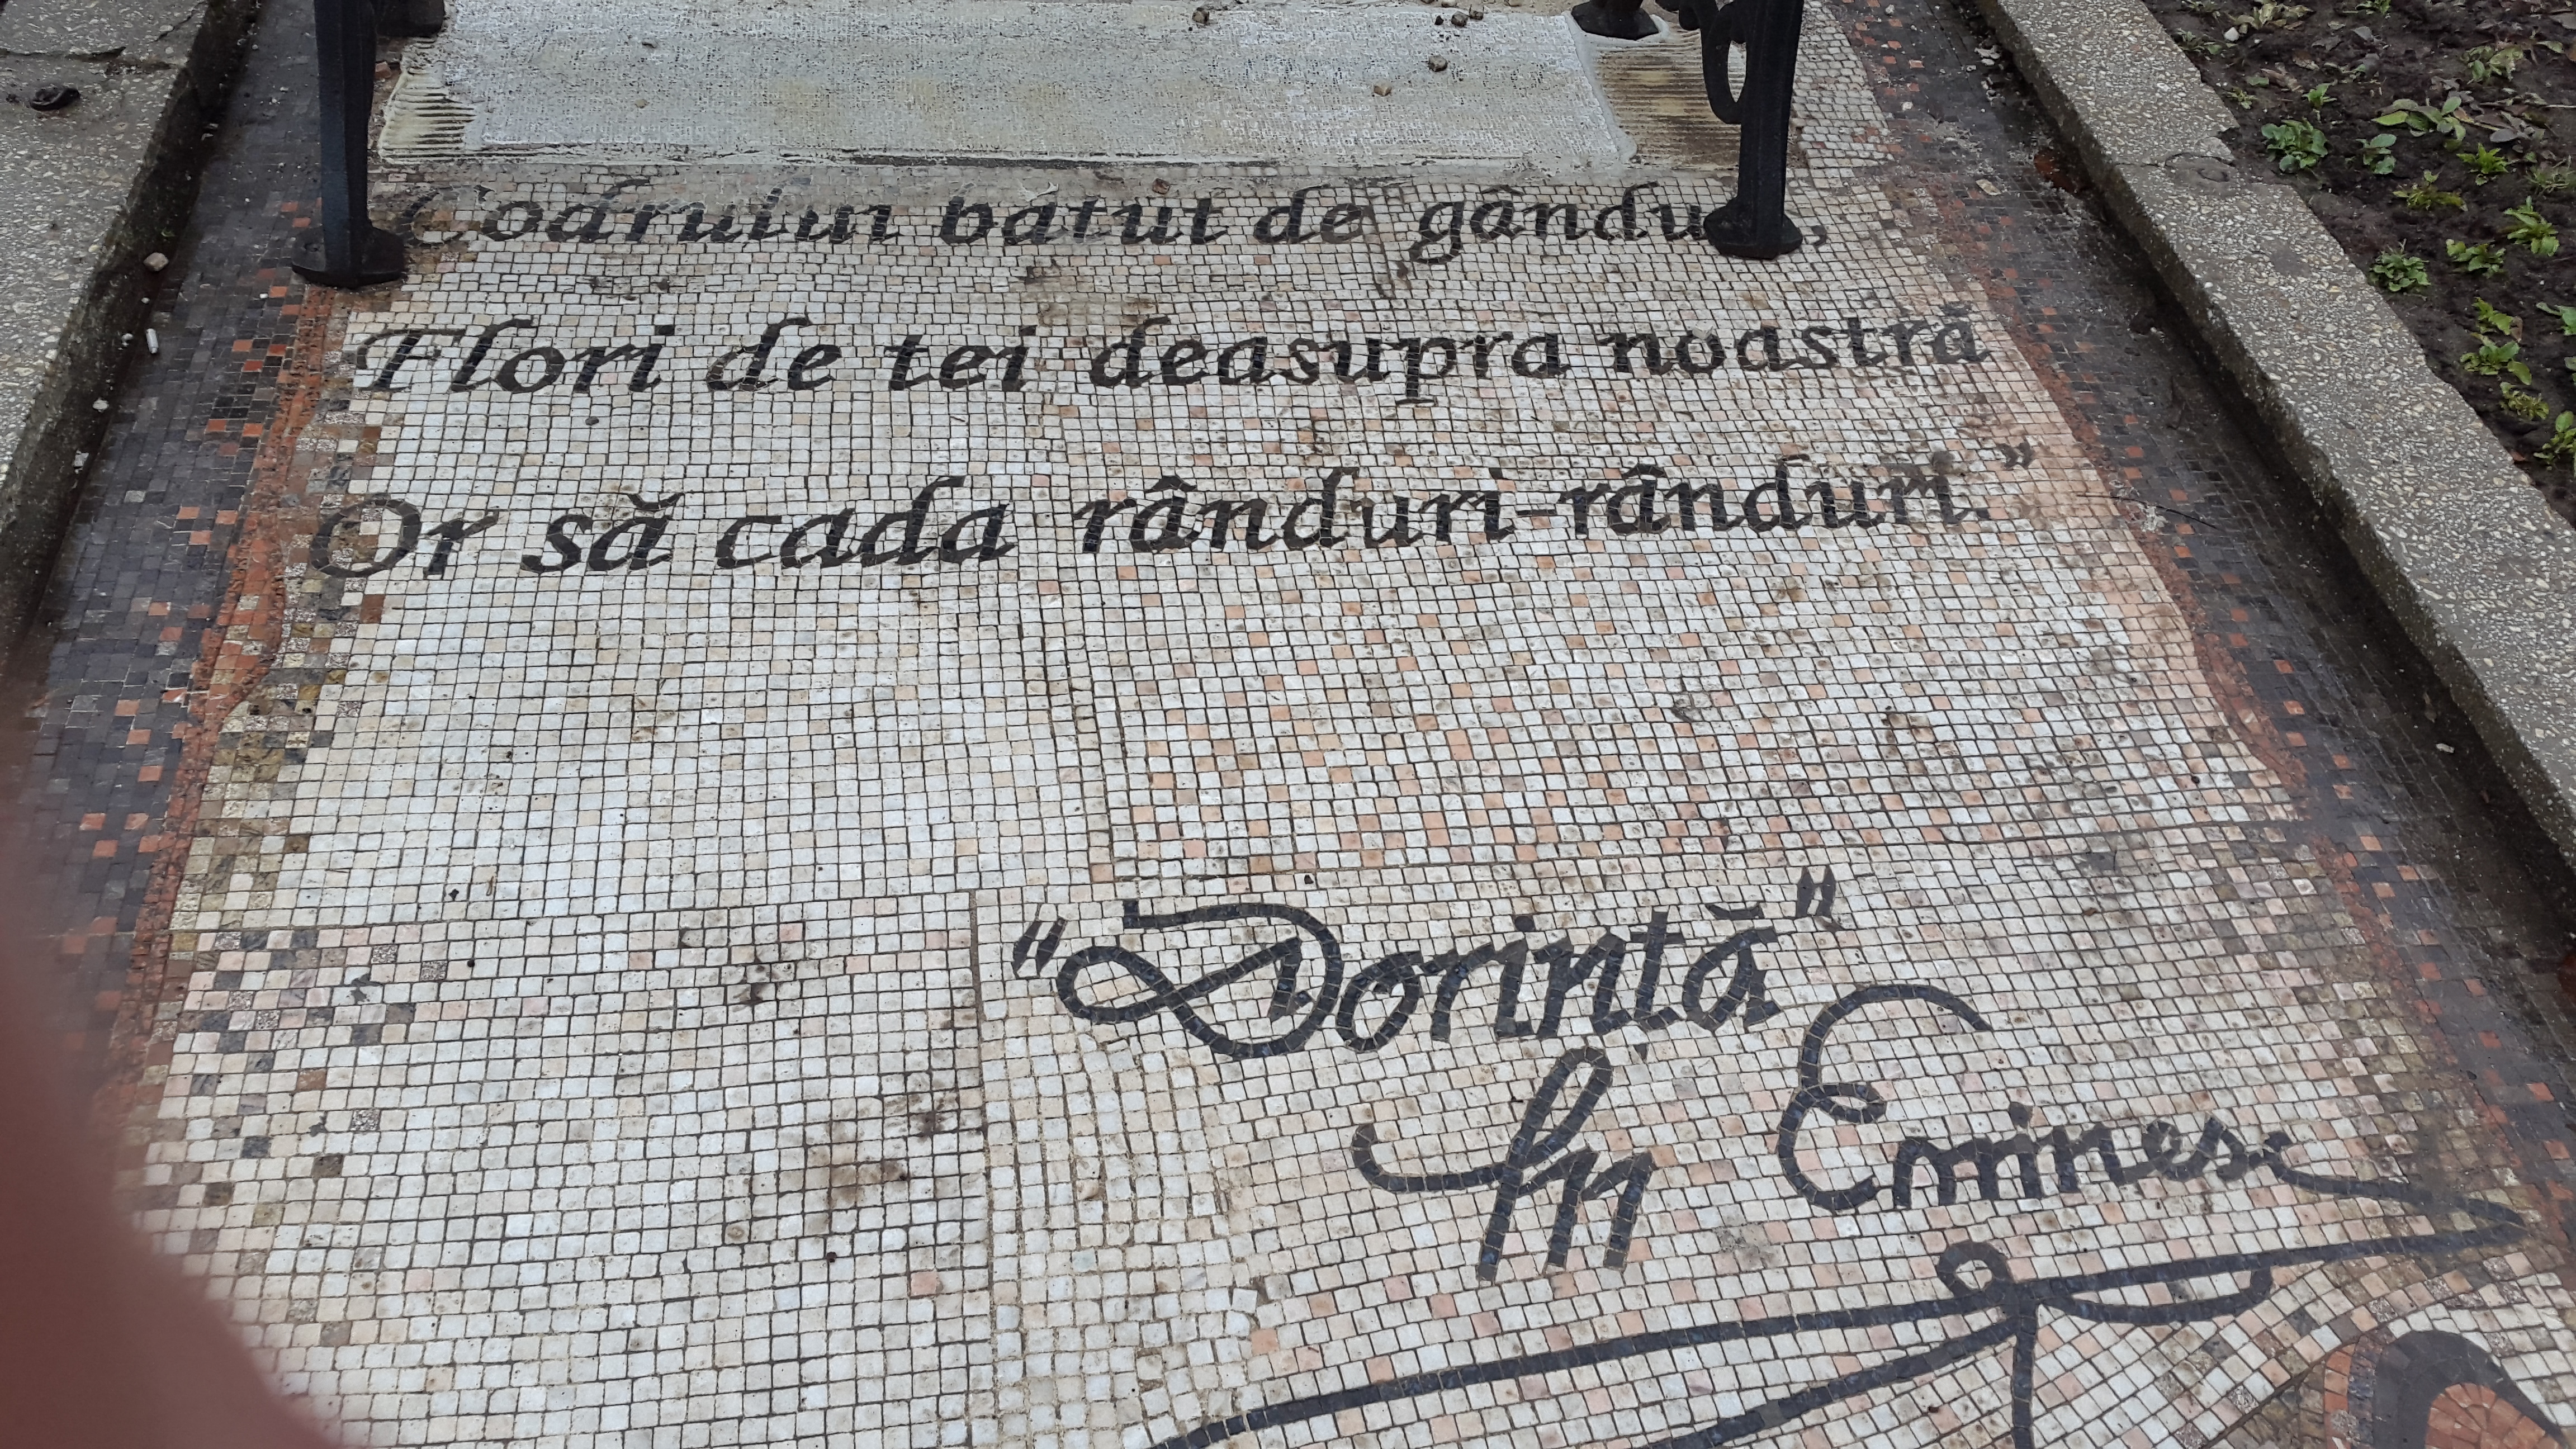 Codrului batut de gându ,
Flori de tei deasupra noastră
Or să cada rânduri-rânduri."
"Dorință"
M Eminesc